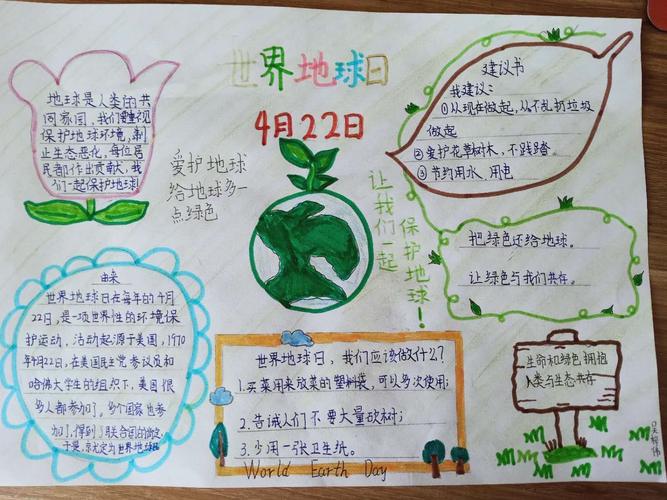 世界地球日
4月22日
地球是人类的共
同家园，我们要重视
保护地球环境，制
止生态恶化，每位居
民都作出贡献大，我
们一起保护地球！
爱护地球
给地球多一
点绿色
建议书
我建议：
①从现在做起，从不乱扔垃圾
做起
②爱护花草树木，不践踏
③节约用水、用电
让我们一起
保护地球！
把绿色还给地球。
让绿色与我们共存。
由来
世界地球日在每年的4月
22日，是一项世界性的环境保
护运动，活动起源于美国，1970
年4月22日，在美国民主党参议员和
哈佛大学生的组织下，美国很
多人都参加了，多个国家也参
加了，得到了联合国的
于是，
世界地球日，我们应该做什么？
1.买菜用来放菜的塑料袋，可以多次使用；
2.告诫人们不要大量砍树；
3.少用一张卫生纸。
World Earth Day
生命和绿色拥抱
人类与生态共存